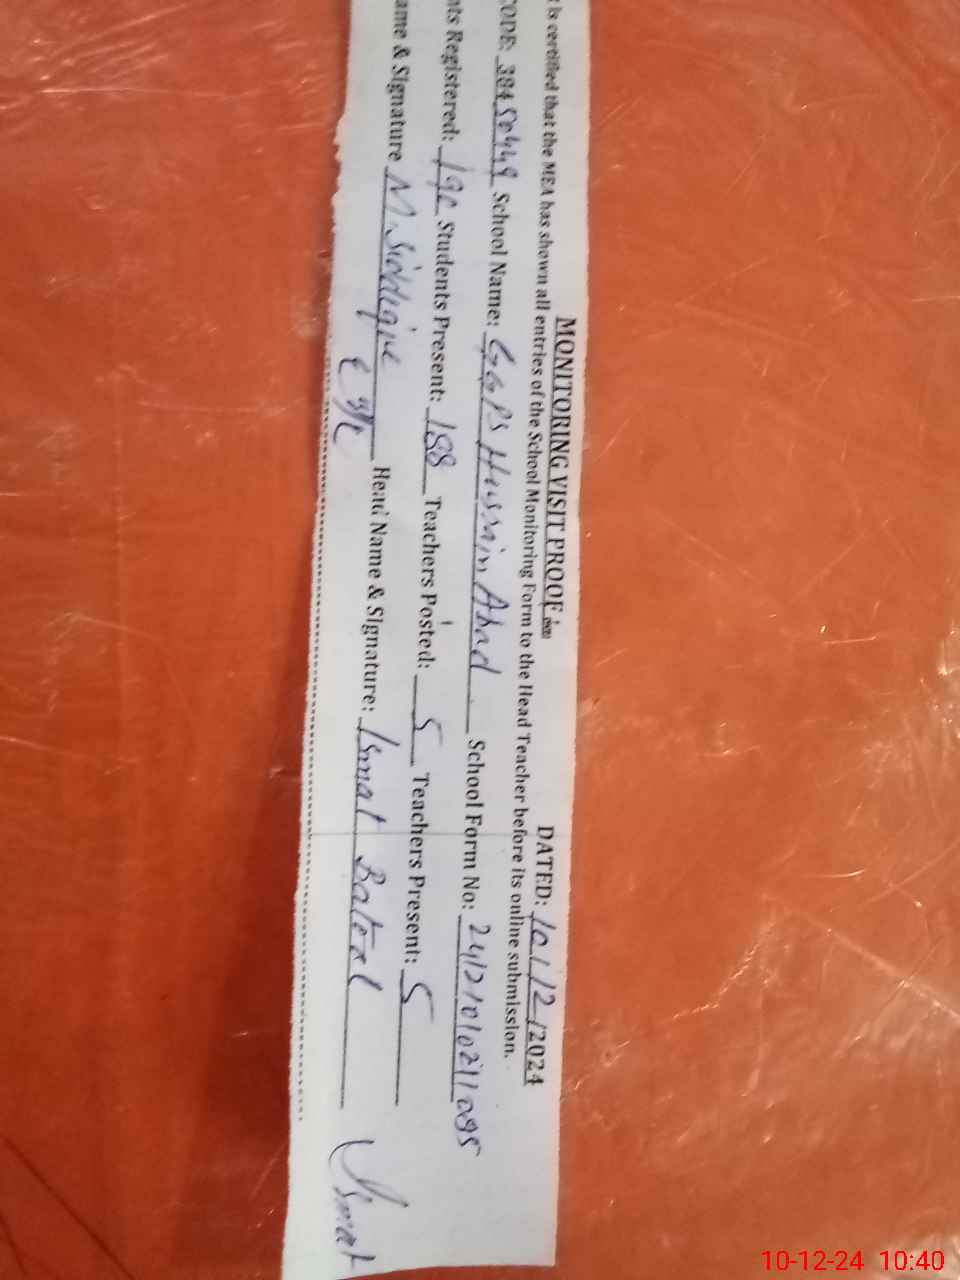 MONITORING VISIT PROOF
DATED: 10/12/2024
t is certified that the MEA has shown all entries of the School Monitoring Form to the Head Teacher before its online submission.
CODE: 38450449 School Name: GGPS Hussain Abad School Form No:
nts Registered: 190 Students Present: 188 Teachers Posted: 5 Teachers Present: 5
ame & Signature M. Siddique Head Name & Signature: Ismat Batool Ismat
10-12-24 10:40